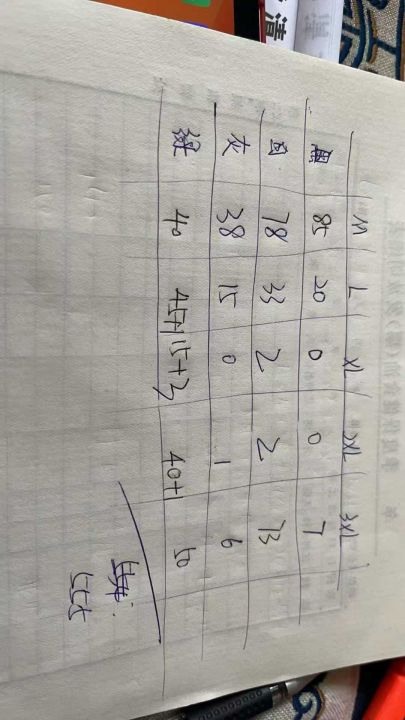 M L XL 2XL 3XL
黑 85 20 0 0 7
白 78 33 2 2 13
灰 38 15 0 1 6
绿 40 45+1 15+3 40+1 50